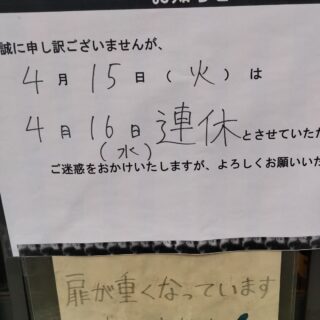 誠に申し訳ございませんが、
4月15日(火)は
4月16日連休とさせていただ
(水)
ご迷惑をおかけいたしますが、よろしくお願いいた
扉が重くなっています